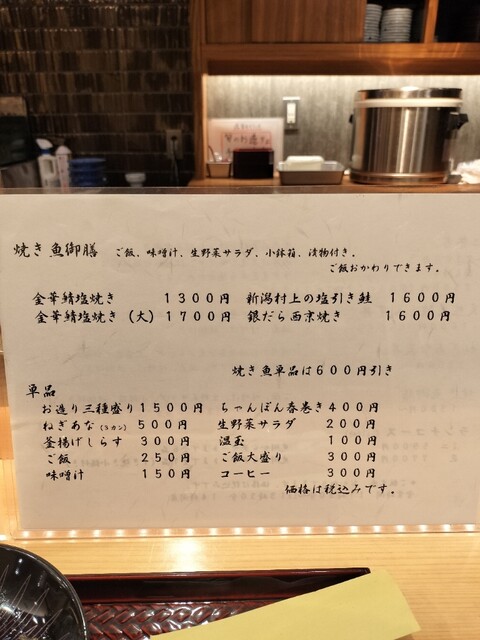 焼き魚御膳 ご飯、味噌汁、生野菜サラダ、小鉢箱、漬物付き。
ご飯おかわりできます。
金華鯖塩焼き 1300円 新潟村上の塩引き鮭 1600円
金華鯖塩焼き(大) 1700円 銀だら西京焼き 1600円
焼き魚単品は600円引き
単品
お造り三種盛り 1500円 ちゃんぽん春巻き 400円
ねぎあな(3カン) 500円 生野菜サラダ 200円
釜揚げしらす 300円 温玉 100円
ご飯 250円 ご飯大盛り 300円
味噌汁 150円 コーヒー 300円
価格は税込みです。